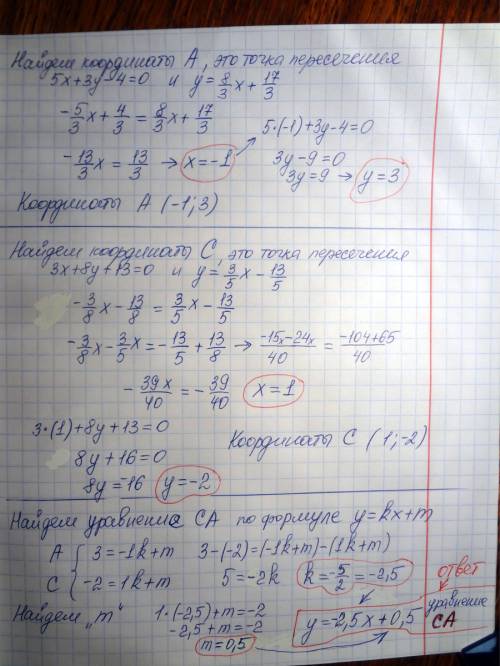 Найдем координаты А, это точка пересечения
5x+3y-4=0 и y=8/3x+17/3
-5/3x+4/3=8/3x+17/3
-13/3x=13/3 → x=-1
5·(-1)+3y-4=0
3y-9=0
3y=9 → y=3
Координаты А (-1;3)
Найдем координаты С, это точка пересечения
3x+8y+13=0 и y=3/5x-13/5
-3/8x-13/8=3/5x-13/5
-3/8x-3/5x=-13/5+13/8 → -15x-24x/40=-104+65/40
-39x/40=-39/40 x=1
3·(1)+8y+13=0
8y+16=0
8y=-16 y=-2
Координаты С (1;-2)
Найдем уравнение СА по формуле y=kx+m
А { 3=-1k+m 3-(-2)=(-1k+m)-(1k+m)
С { -2=1k+m 5=-2k k=-5/2=-2,5
Найдем „m" 1·(-2,5)+m=-2
-2,5+m=-2
m=0,5
y=-2,5x+0,5
ответ
уравнение
СА